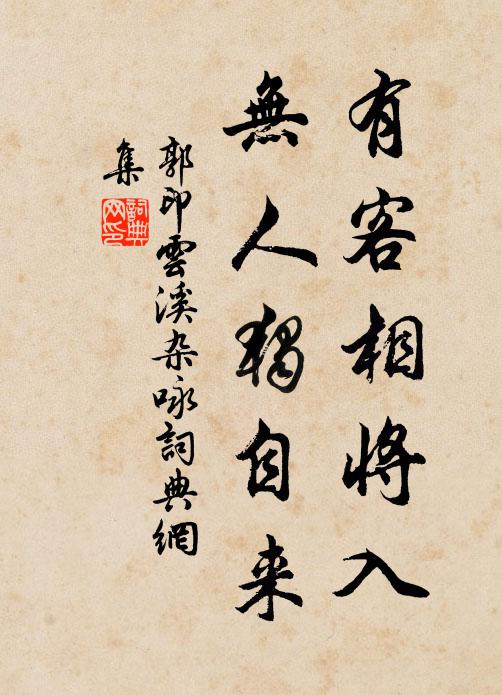 有客相将入
無人獨自来
郭印雲溪杂咏詞典網
集
詞典网印